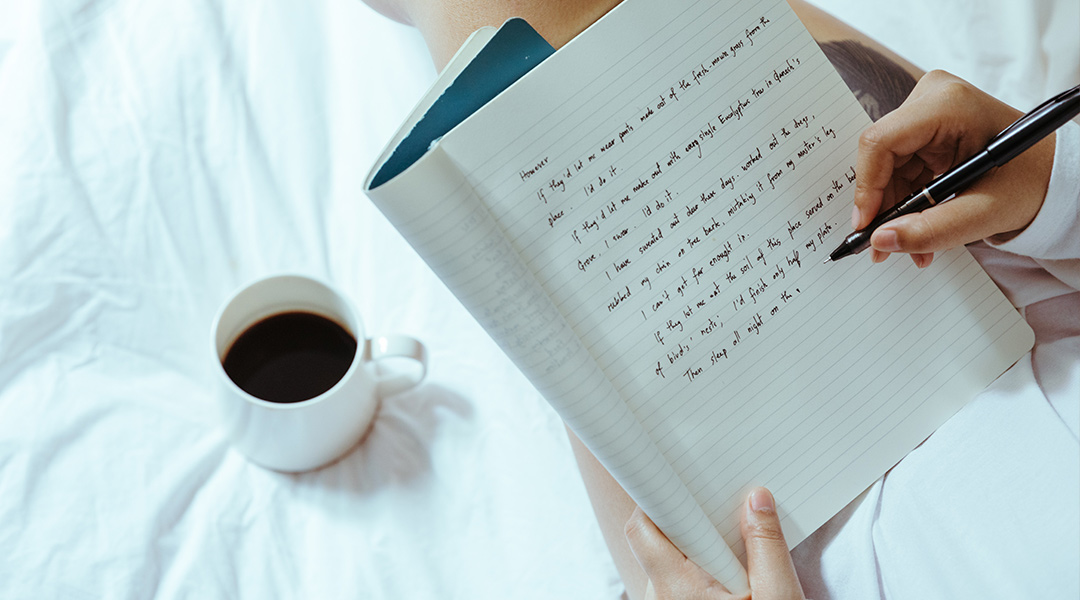 However
If they'd let me wear pants made out of the fresh-mown grass from the
place. I'd do it.
If they'd let me make out with every single Eucalyptus tree in Ganesh's
Grove, I swear. I'd do it.
I have sweated out dew these days. worked out the dregs,
rubbed my chin on tree bark, mistaking it from my master's leg
I can't get far enough in.
If they let me eat the soil of this place served on the
of birds' nests, I'd finish only half my plate.
Then sleep all night on the